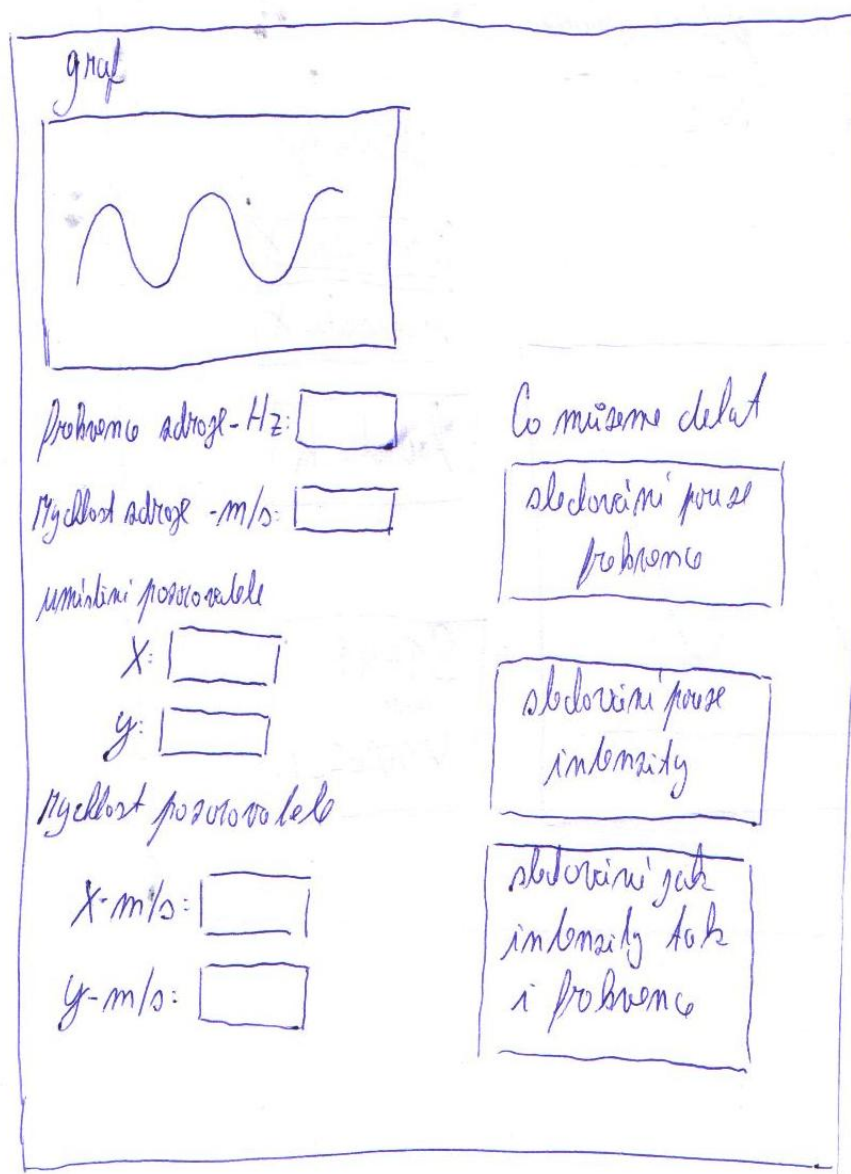 graf
frekvence zdroje - Hz:
rychlost zdroje - m/s:
umístění pozorovatele
X:
y:
rychlost pozorovatele
X - m/s:
y - m/s:
Co můžeme delat
sledování pouze
frekvence
sledování pouze
intenzity
sledování jak
intenzity tak
i frekvence